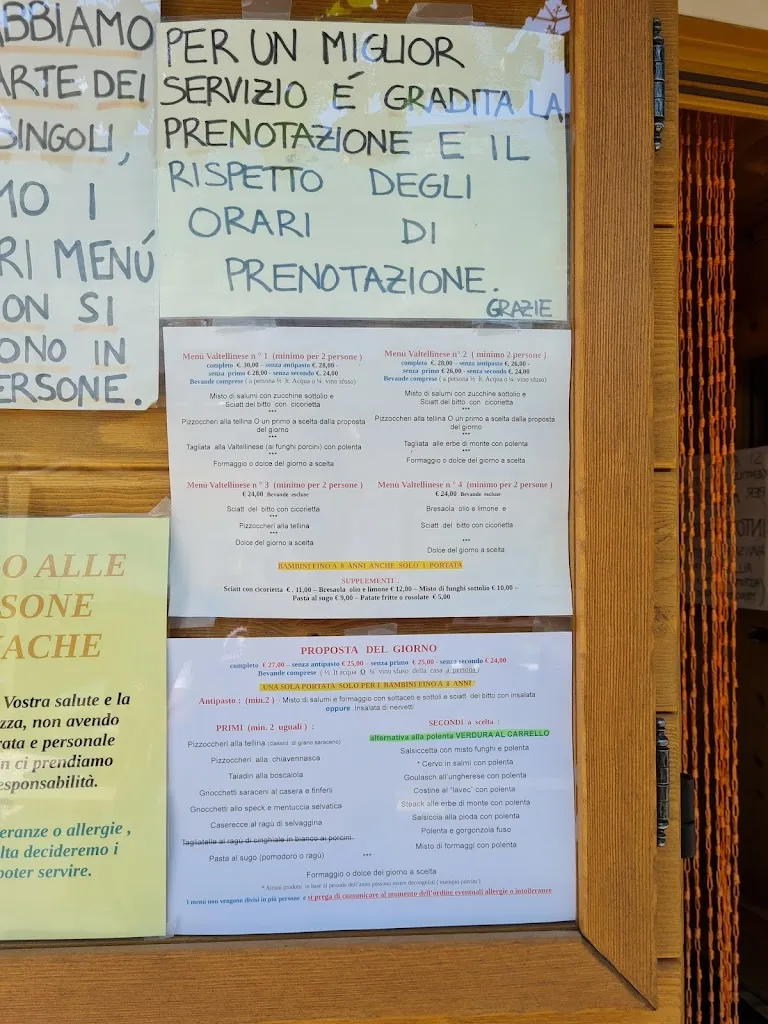 ABBIAMO
ARTE DEI
SINGOLI,
MO I
RI MENÚ
ON SI
ONO IN
ERSONE.
PER UN MIGLIOR
SERVIZIO É GRADITA LA
PRENOTAZIONE E IL
RISPETTO DEGLI
ORARI DI
PRENOTAZIONE.
GRAZIE
Menù Valtellinese n° 1 (minimo per 2 persone)
completo €. 30,00 – senza antipasto €. 28,00 -
senza primo € 28,00 – senza secondo €. 24,00
Bevande comprese ( a persona ½ lt. Acqua o ¼ vino sfuso)
Misto di salumi con zucchine sottolio e
Sciatt del bitto con cicorietta
***
Pizzoccheri alla tellina O un primo a scelta dalla proposta
del giorno
***
Tagliata alla Valtellinese (ai funghi porcini) con polenta
Formaggio o dolce del giorno a scelta
Menù Valtellinese n° 2 ( minimo 2 persone )
completo €. 28,00 – senza antipasto €. 26,00 -
senza primo € 26,00 – senza secondo €. 24,00
Bevande comprese ( a persona ½ lt. Acqua o ¼ vino sfuso)
Misto di salumi con zucchine sottolio e
Sciatt del bitto con cicorietta
***
Pizzoccheri alla tellina O un primo a scelta dalla proposta
del giorno
***
Tagliata alle erbe di monte con polenta
Formaggio o dolce del giorno a scelta
Menù Valtellinese n° 3 (minimo per 2 persone )
€ 24,00 Bevande escluse
Sciatt del bitto con cicorietta
***
Pizzoccheri alla tellina
***
Dolce del giorno a scelta
Menù Valtellinese n° 4 (minimo per 2 persone )
€ 24,00 Bevande escluse
Bresaola olio e limone e
Sciatt del bitto con cicorietta
***
Dolce del giorno a scelta
BAMBINI FINO A 8 ANNI ANCHE SOLO 1 PORTATA
SUPPLEMENTI .
Sciatt con cicorietta €. 11,00 – Bresaola olio e limone € 12,00 – Misto di funghi sottolio € 10,00 –
Pasta al sugo € 9,00 – Patate fritte o rosolate € 5,00
O ALLE
SONE
ACHE
Vostra salute e la
zza, non avendo
rata e personale
n ci prendiamo
esponsabilità.
eranze o allergie ,
lta decideremo i
poter servire.
PROPOSTA DEL GIORNO
completo € 27,00 – senza antipasto € 25,00 – senza primo € 25,00 - senza secondo € 24,00
Bevande comprese ( ½ lt acqua O ¼ vino sfuso della casa a persona )
UNA SOLA PORTATA SOLO PER I BAMBINI FINO A 8 ANNI
Antipasto : (min.2) - Misto di salumi e formaggio con sottaceti e sottoli e sciatt del bitto con insalata
oppure Insalata di nervetti
PRIMI (min. 2 uguali ) :
Pizzoccheri alla tellina (classici di grano saraceno)
Pizzoccheri alla chiavennasca
Taiadin alla boscaiola
Gnocchetti saraceni al casera e finferli
Gnocchetti allo speck e mentuccia selvatica
Caserecce al ragù di selvaggina
Tagliatelle al ragù di cinghiale in bianco ai porcini
Pasta al sugo (pomodoro o ragù)
SECONDI a scelta :
alternativa alla polenta VERDURA AL CARRELLO
Salsiccetta con misto funghi e polenta
* Cervo in salmì con polenta
Goulasch all'ungherese con polenta
Costine al "lavec" con polenta
Steack alle erbe di monte con polenta
Salsiccia alla pioda con polenta
Polenta e gorgonzola fuso
Misto di formaggi con polenta
***
Formaggio o dolce del giorno a scelta
* Alcuni prodotti in base al periodo dell'anno possono essere decongelati ( esempio porcini )
I menù non vengono divisi in più persone e si prega di comunicare al momento dell'ordine eventuali allergie o intolleranze